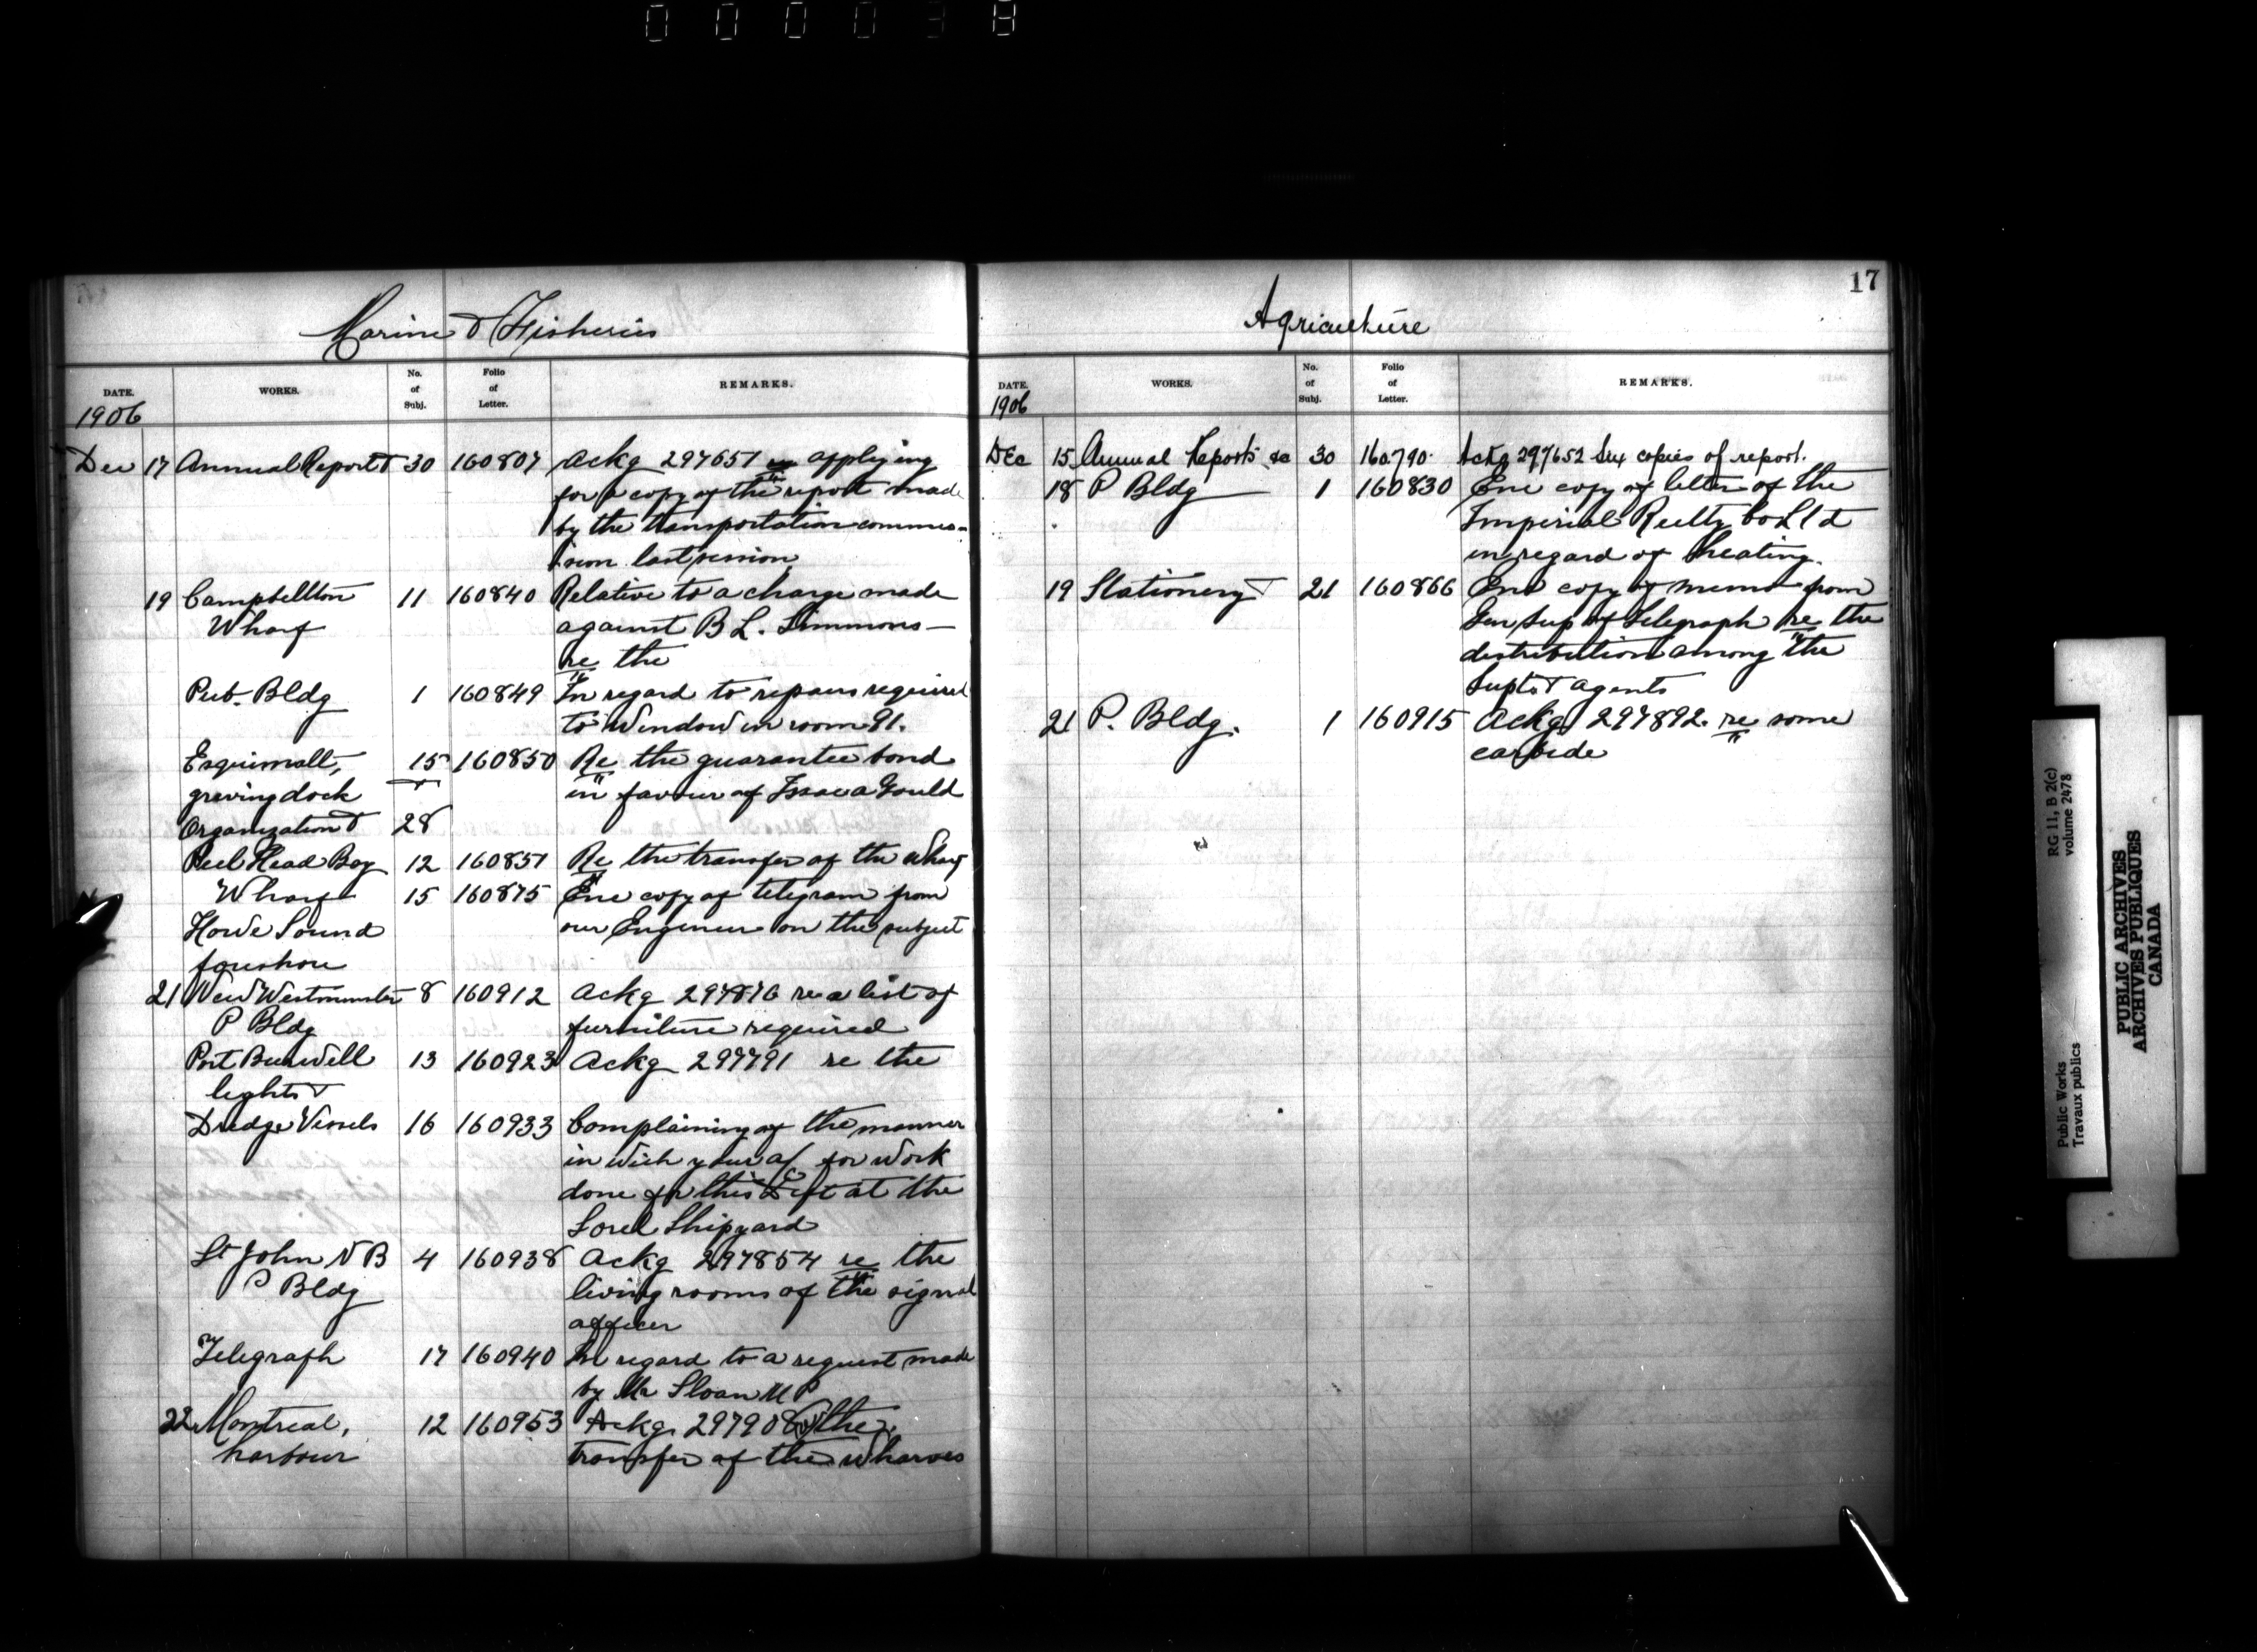 000038
Marine & Fisheries
DATE. WORKS. No. of Subj. Folio of Letter. REMARKS.
1906
Dec 17 Annual Report & 30 160807 Ackg 297651 applying
for a copy of the report made
by the transportation commis-
sion last session
19 Campbellton 11 160840 Relative to a charge made
Wharf against B L. Simmons—
re the
Pub. Bldg 1 160849 In regard to repairs required
to window in room 91.
Esquimalt, 15 160850 Re the guarantee bond
graving dock in favour of Isaac Gould
Organization & 28
Peel Head Bay 12 160851 Re the transfer of the wharf
Wharf 15 160875 Enc copy of telegram from
Howe Sound our Engineer on the subject
foreshore
21 New Westminster 8 160912 Ackg 297876 re a list of
P Bldg furniture required
Port Burwell 13 160923 Ackg 297791 re the
lights &
Dredge Vessels 16 160933 Complaining of the manner
in wich your a/c for work
done for this Dept at the
Sorel Shipyard
St John N B 4 160938 Ackg 297854 re the
P Bldg living rooms of the signal
officer
Telegraph 17 160940 In regard to a request made
by Mr Sloan M P
22 Montreal, 12 160953 Ackg 297908 the
harbour transfer of the wharves
17
Agriculture
DATE. WORKS. No. of Subj. Folio of Letter. REMARKS.
1906
Dec 15 Annual Reports &c 30 160790 Ackg 297652 Six copies of report.
18 P Bldg 1 160830 Enc copy of letter of the
Imperial Reilty Co Ltd
in regard of heating.
19 Stationery & 21 160866 Enc copy of memo from
Gen Sup of Telegraph re the
distribution among the
Supts & agents
21 P. Bldg. 1 160915 Ackg 297892. re some
carbide
RG 11, B 2(c)
volume 2478
Public Works
Travaux publics
PUBLIC ARCHIVES
ARCHIVES PUBLIQUES
CANADA